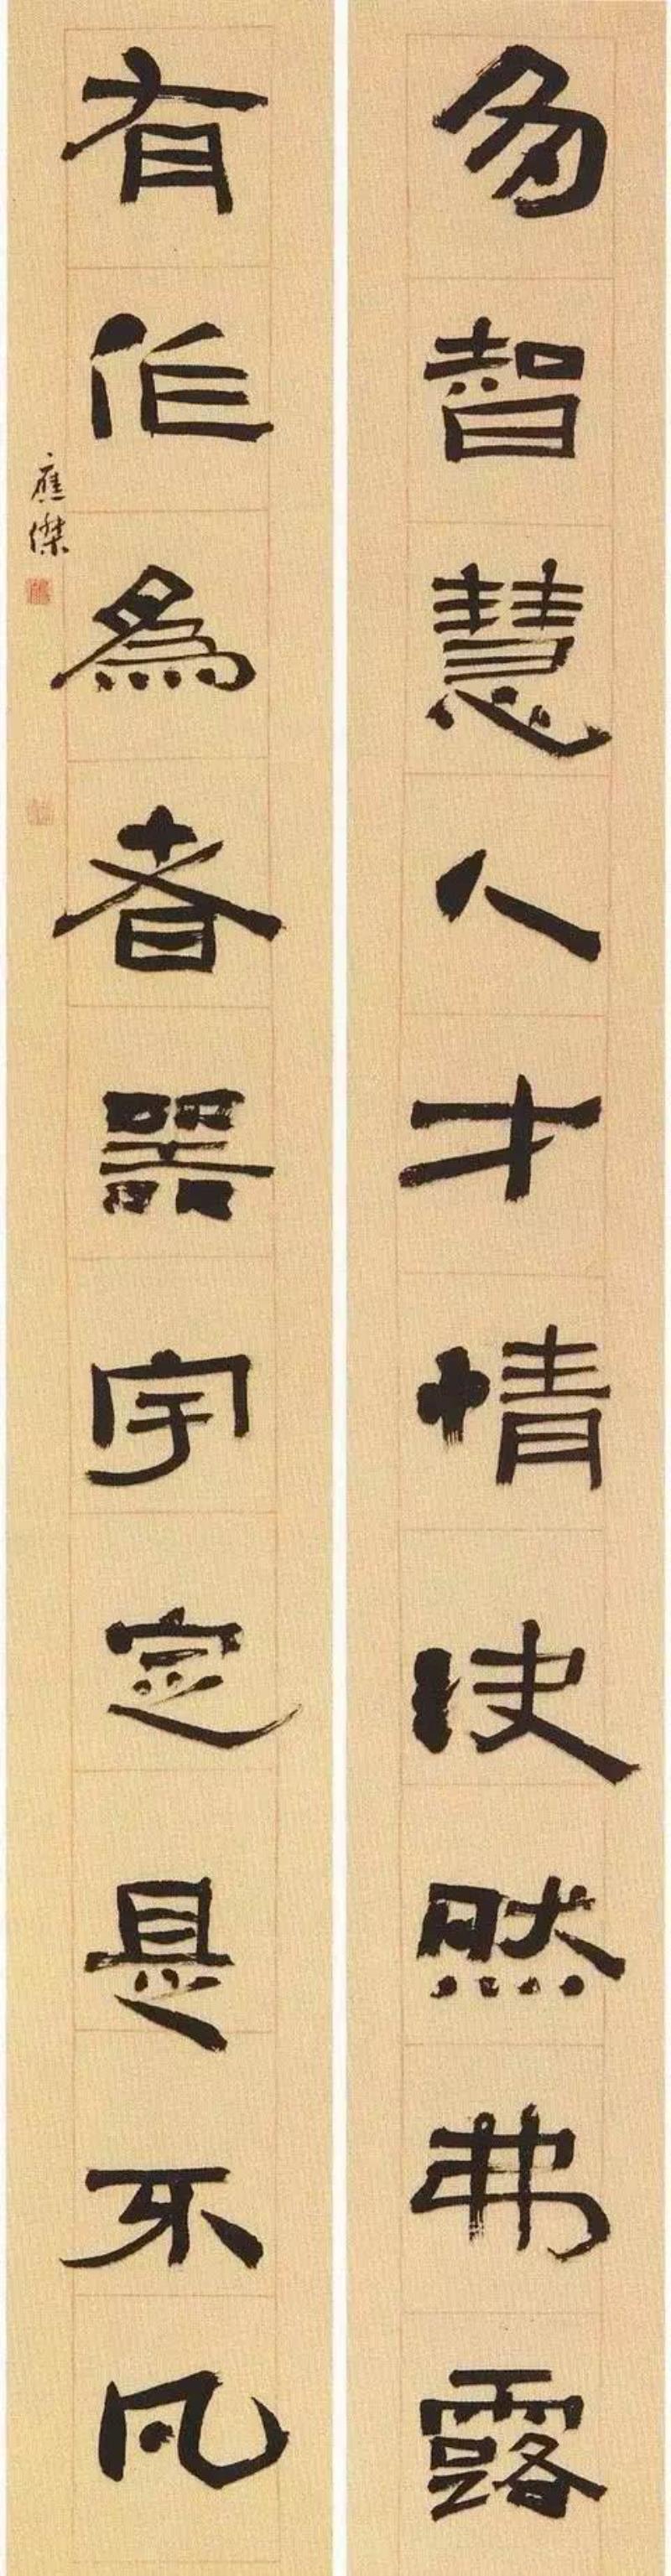 多智慧人才情決然弗露
有作為者器宇定是不凡
應傑